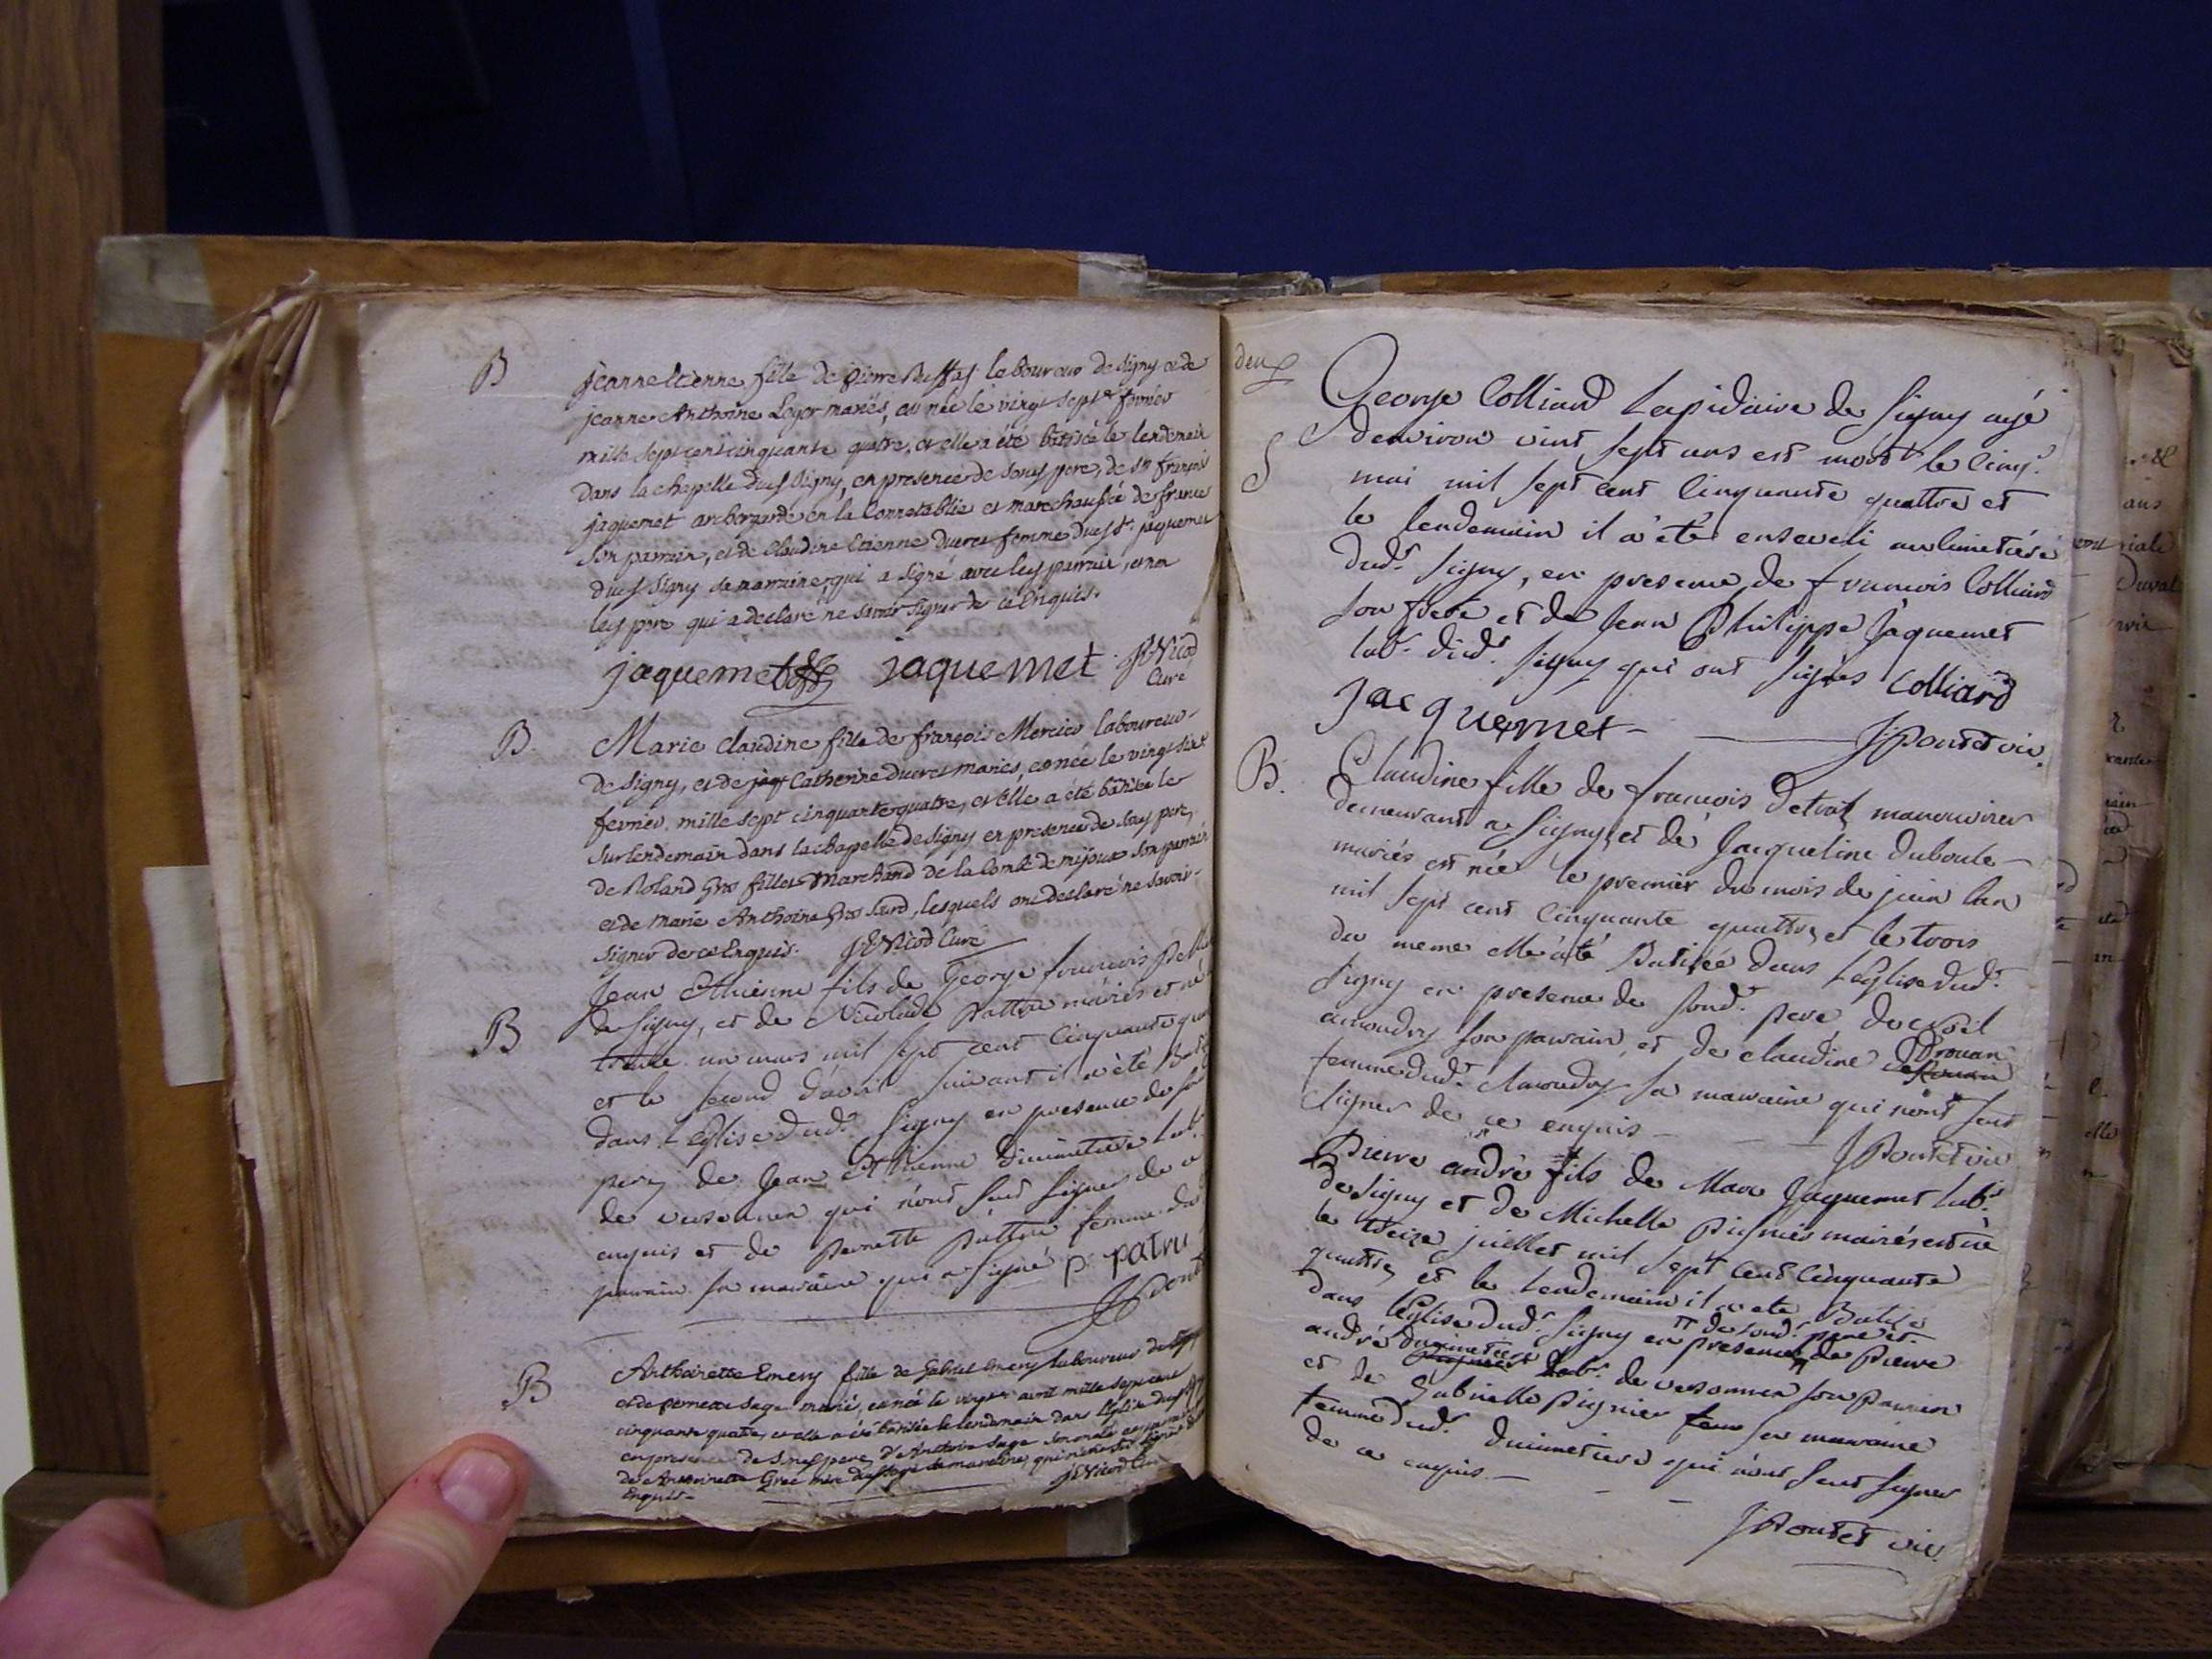 B
jeanne Etienne fille de pierre Buffaz laboureur de Signy et de
jeanne Anthoine Leger mariés, est née le vingt sept fevrier
mille sept cent cinquante quatre, et elle a été batisée le lendemain
dans la chapelle dud Signy, en presence de sond pere, de Sr françois
jaquemet archergarde en la Connetablie et marechaussée de france
son parrain, et de Claudine Etienne ducret femme dud Sr jaquemet
dud Signy sa marraine, qui a signé avec led parrain, et non
led pere qui a declaré ne savoir signer de ce Enquis.
jaquemet jaquemet JR Nicod
Curé
B.
Marie claudine fille de françois Mercier laboureur
de Signy, et de Catherine ducret mariés, est née le vingt six
fevrier mille sept cinquante quatre, et elle a été batisée le
surlendemain dans la chapelle de Signy en presence de sond pere,
de Roland Gros fillet Marchand de la Combe de mijoux son parrain
et de marie Anthoine Gros lard, lesquels ont declaré ne savoir
signer de ce Enquis. JR Nicod Curé
B
Jean Ethienne fils de George francois
de Signy, et de Nicolade Pattru mariés est né
un mars mil sept cent Cinquante
et le second d'avril suivant il a été
dans l Eglise dud. Signy en presence de
pere, de Jean Ethienne Duimetiere lab.
de vesonnex qui n'ont sceut signer de ce
enquis et de Pernette Pattru femme dud
parrain sa maraine qui a signé p. patru
B
Anthoinette Emery fille de Gabriel Emery laboureur de
et de pernette Sage mariés, est née le avril mille sept cent
cinquante quatre, et elle a été batisée le lendemain dans l'Eglise dud
en presence de sond pere, d'Anthoine Sage son oncle
de Anthoinette
Enquis. JR Nicod
deux
S
George Colliard Lapidaire de Signy agé
denviron vint sept ans est mort le cinq
mai mil sept cent Cinquante quattre et
le lendemain il a été enseveli au cimetiere
dud. Signy, en presence de francois Colliard
son frere et de Jean Philippe Jaquemet
lab. dud. Signy qui ont signés Colliard
Jacquemet JPontet vic.
B.
Claudine fille de francois Detraz manouvrier
demeurant a Signy et de Jacqueline Duboule
mariés est née le premier du mois de juin lan
mil sept cent Cinquante quattre, et le trois
du meme elle a été Batisée dans l'Eglise dud.
Signy en presence de sond. pere, de Noil
amoudry son parrain, et de claudine Drouan
femme dud. Amoudry sa maraine qui n'ont sceut
signer de ce enquis
JPontet vic
Pierre andré fils de Marc Jaquemet lab.
de Signy et de Michelle Pignier mairés est né
le treize juillet mil sept cent Cinquante
quattre et le lendemain il a ete Batisé
dans l'Eglise dud. Signy en presence de sond. pere et de Pierre
andré duimetiere lab. de vesonnex son Parrain
et de Gabrielle Pignier sa maraine
femme dud. Duimetiere qui n'ont sceut signer
de ce enquis
JPontet vic.